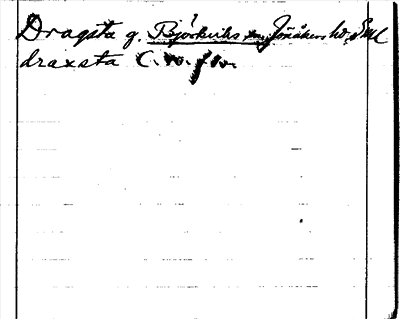 Dragsta g. Björkviks sn. Jönåkers hd. Sml
draxsta C. w. f. w.